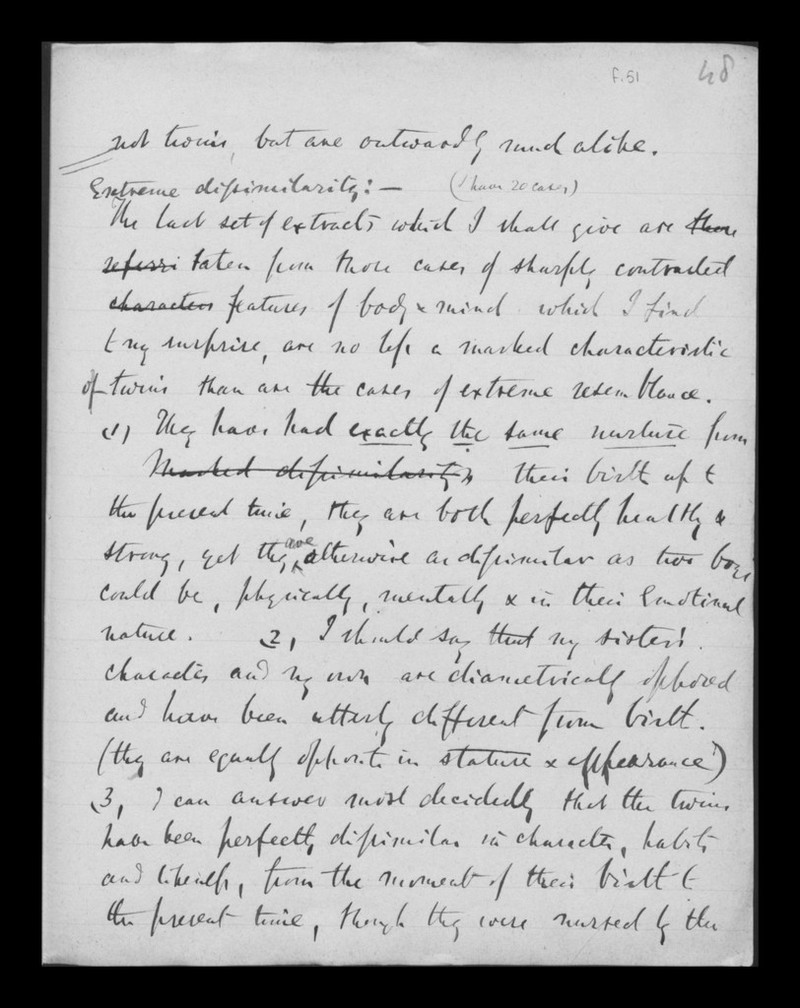 f.51 48
not twins, but are outwardly much alike.
Extreme dissimilarity:— (I have 20 cases)
The last set of extracts which I shall give are those
referri taken from those cases of sharply contrasted
characters features of body & mind which I find
to my surprise, are no less a marked characteristic
of twins than are the cases of extreme resemblance.
(1) They have had exactly the same nurture from
Marked dissimilarity their birth up to
the present time, they are both perfectly healthy &
strong, yet they are otherwise as dissimilar as two boys
could be, physically, mentally & in their Emotional
nature. 2, I should say that my sister's
character and my own are diametrically opposed
and have been utterly different from birth.
(they are equally opposite in stature & appearance)
3, I can answer most decidedly that the twins
have been perfectly dissimilar in character, habits
and likeness, from the moment of their birth to
the present time, though they were nursed by the